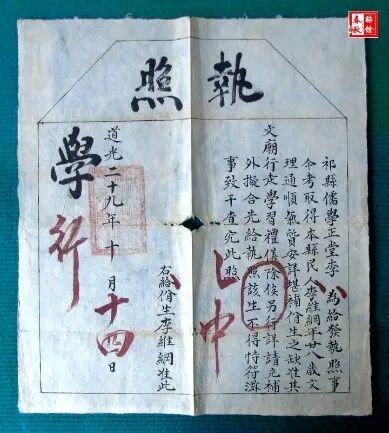 執照
祁縣儒學正堂李 為給發執照事
今考取得本縣民人李維綱年廿八歲文
理通順氣質安詳堪補佾生之缺准其
文廟行走學習禮儀除俟另行詳請充補
外擬合先給執照該生不得恃符滋
事致干查究此照
右給佾生李維綱准此
道光二十九年十月十四日
學行
昭餘